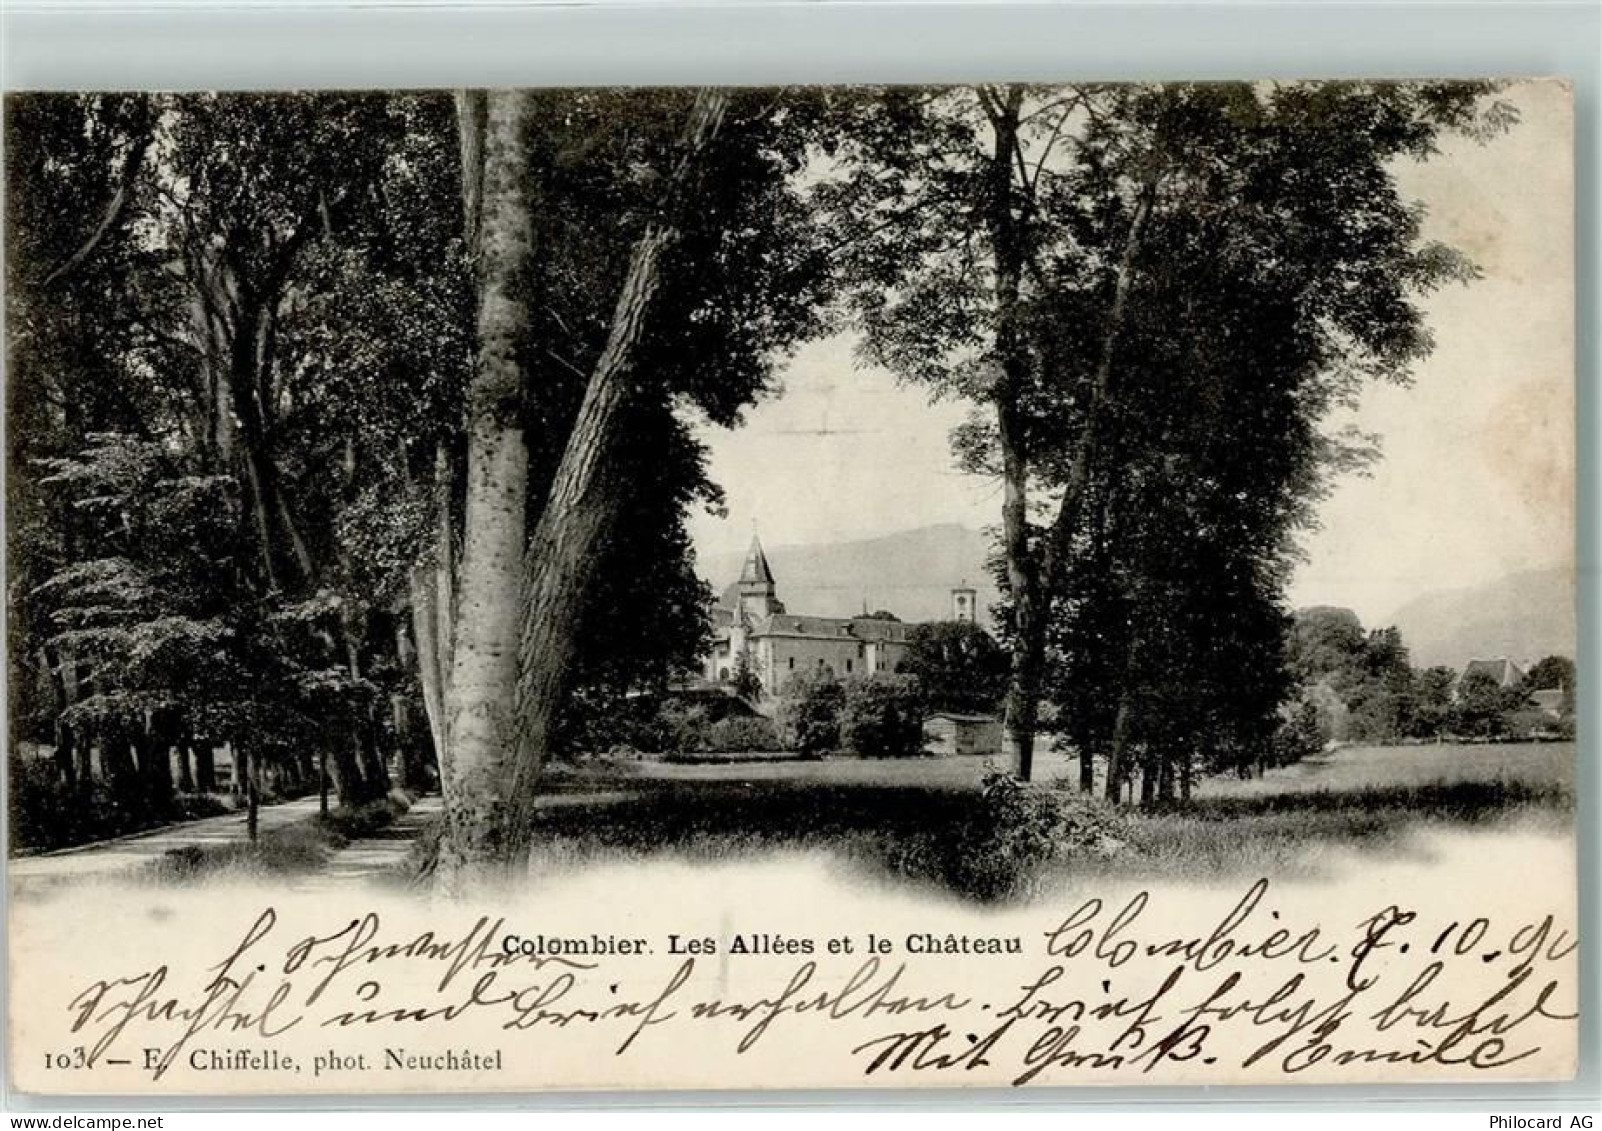 Colombier. Les Allées et le Château
Colombier. 7. 10. 90
l. Schwester
Schachtel und Brief erhalten. Brief folgt bald
Mit Gruß. Emilie
103. — E. Chiffelle, phot. Neuchâtel
Philocard AG